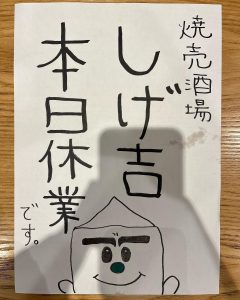 焼売酒場
しげ吉
本日休業
です。